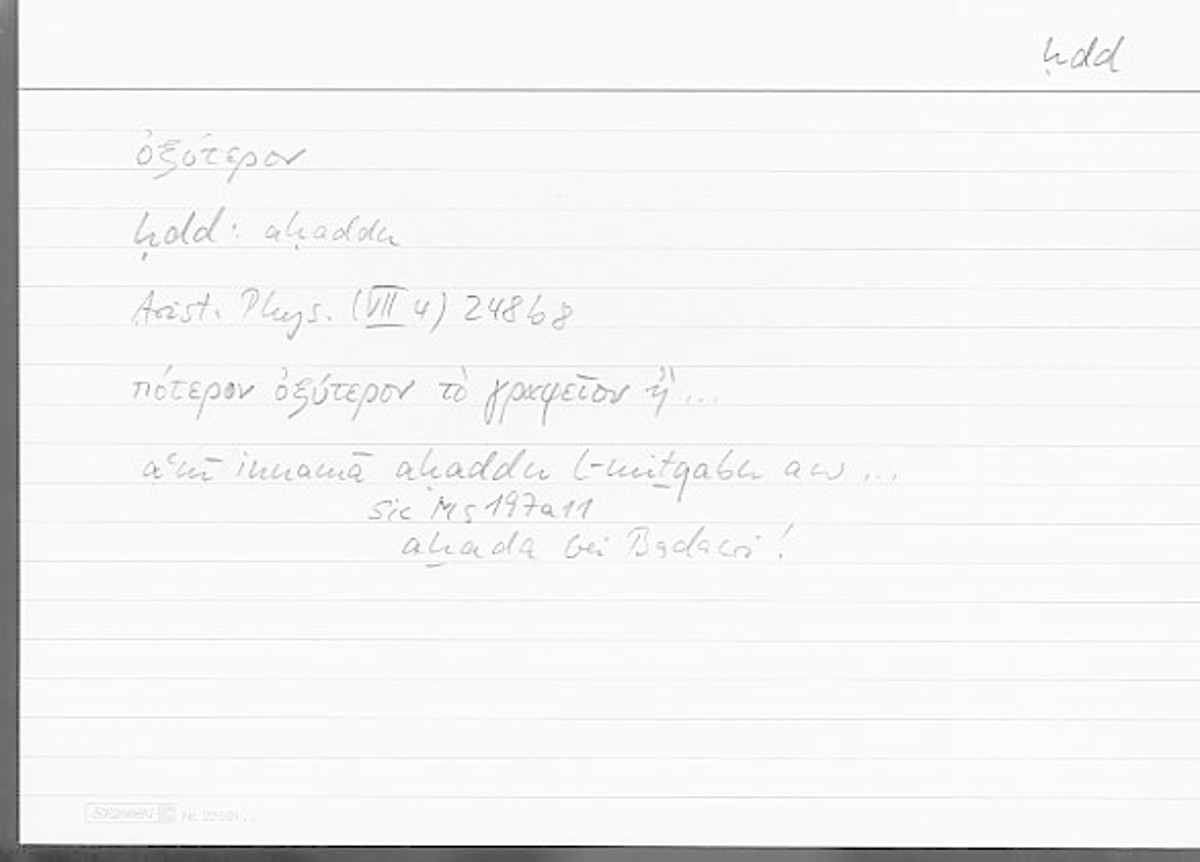 ḥdd
ὀξύτερον
ḥdd: aḥaddu
Arist. Phys. (VII 4) 248b8
πότερον ὀξύτερον τὸ γραφεῖον ἢ ...
aʿnī innamā aḥaddu l-miṯqabu aw ...
sic Ms 197a11
aḫada bei Badawi!